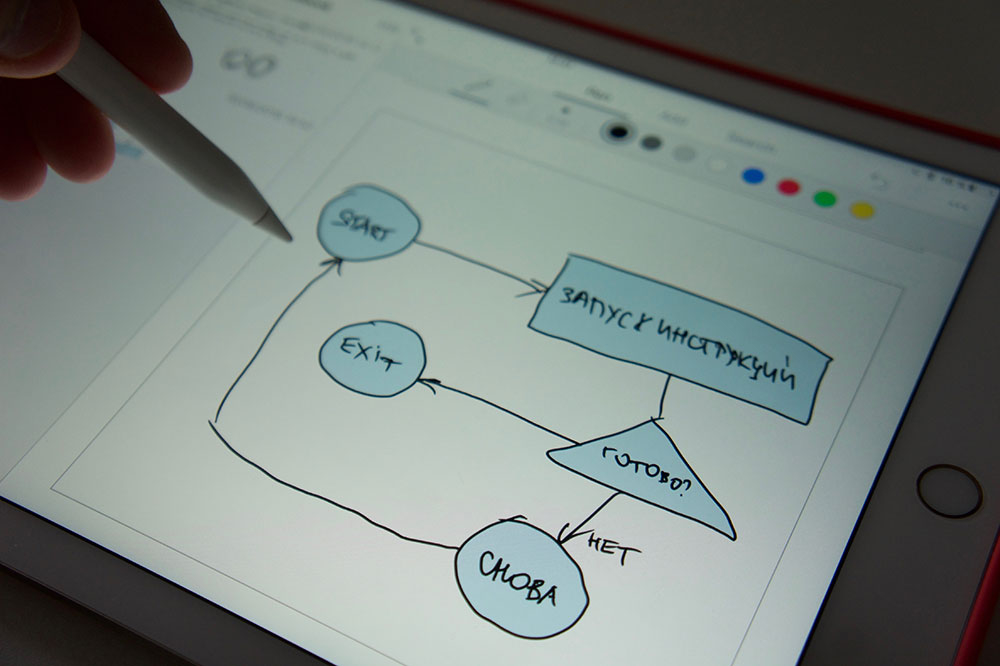 START
ЗАПУСК ИНСТРУКЦИЙ
EXIT
ГОТОВО?
НЕТ
СНОВА